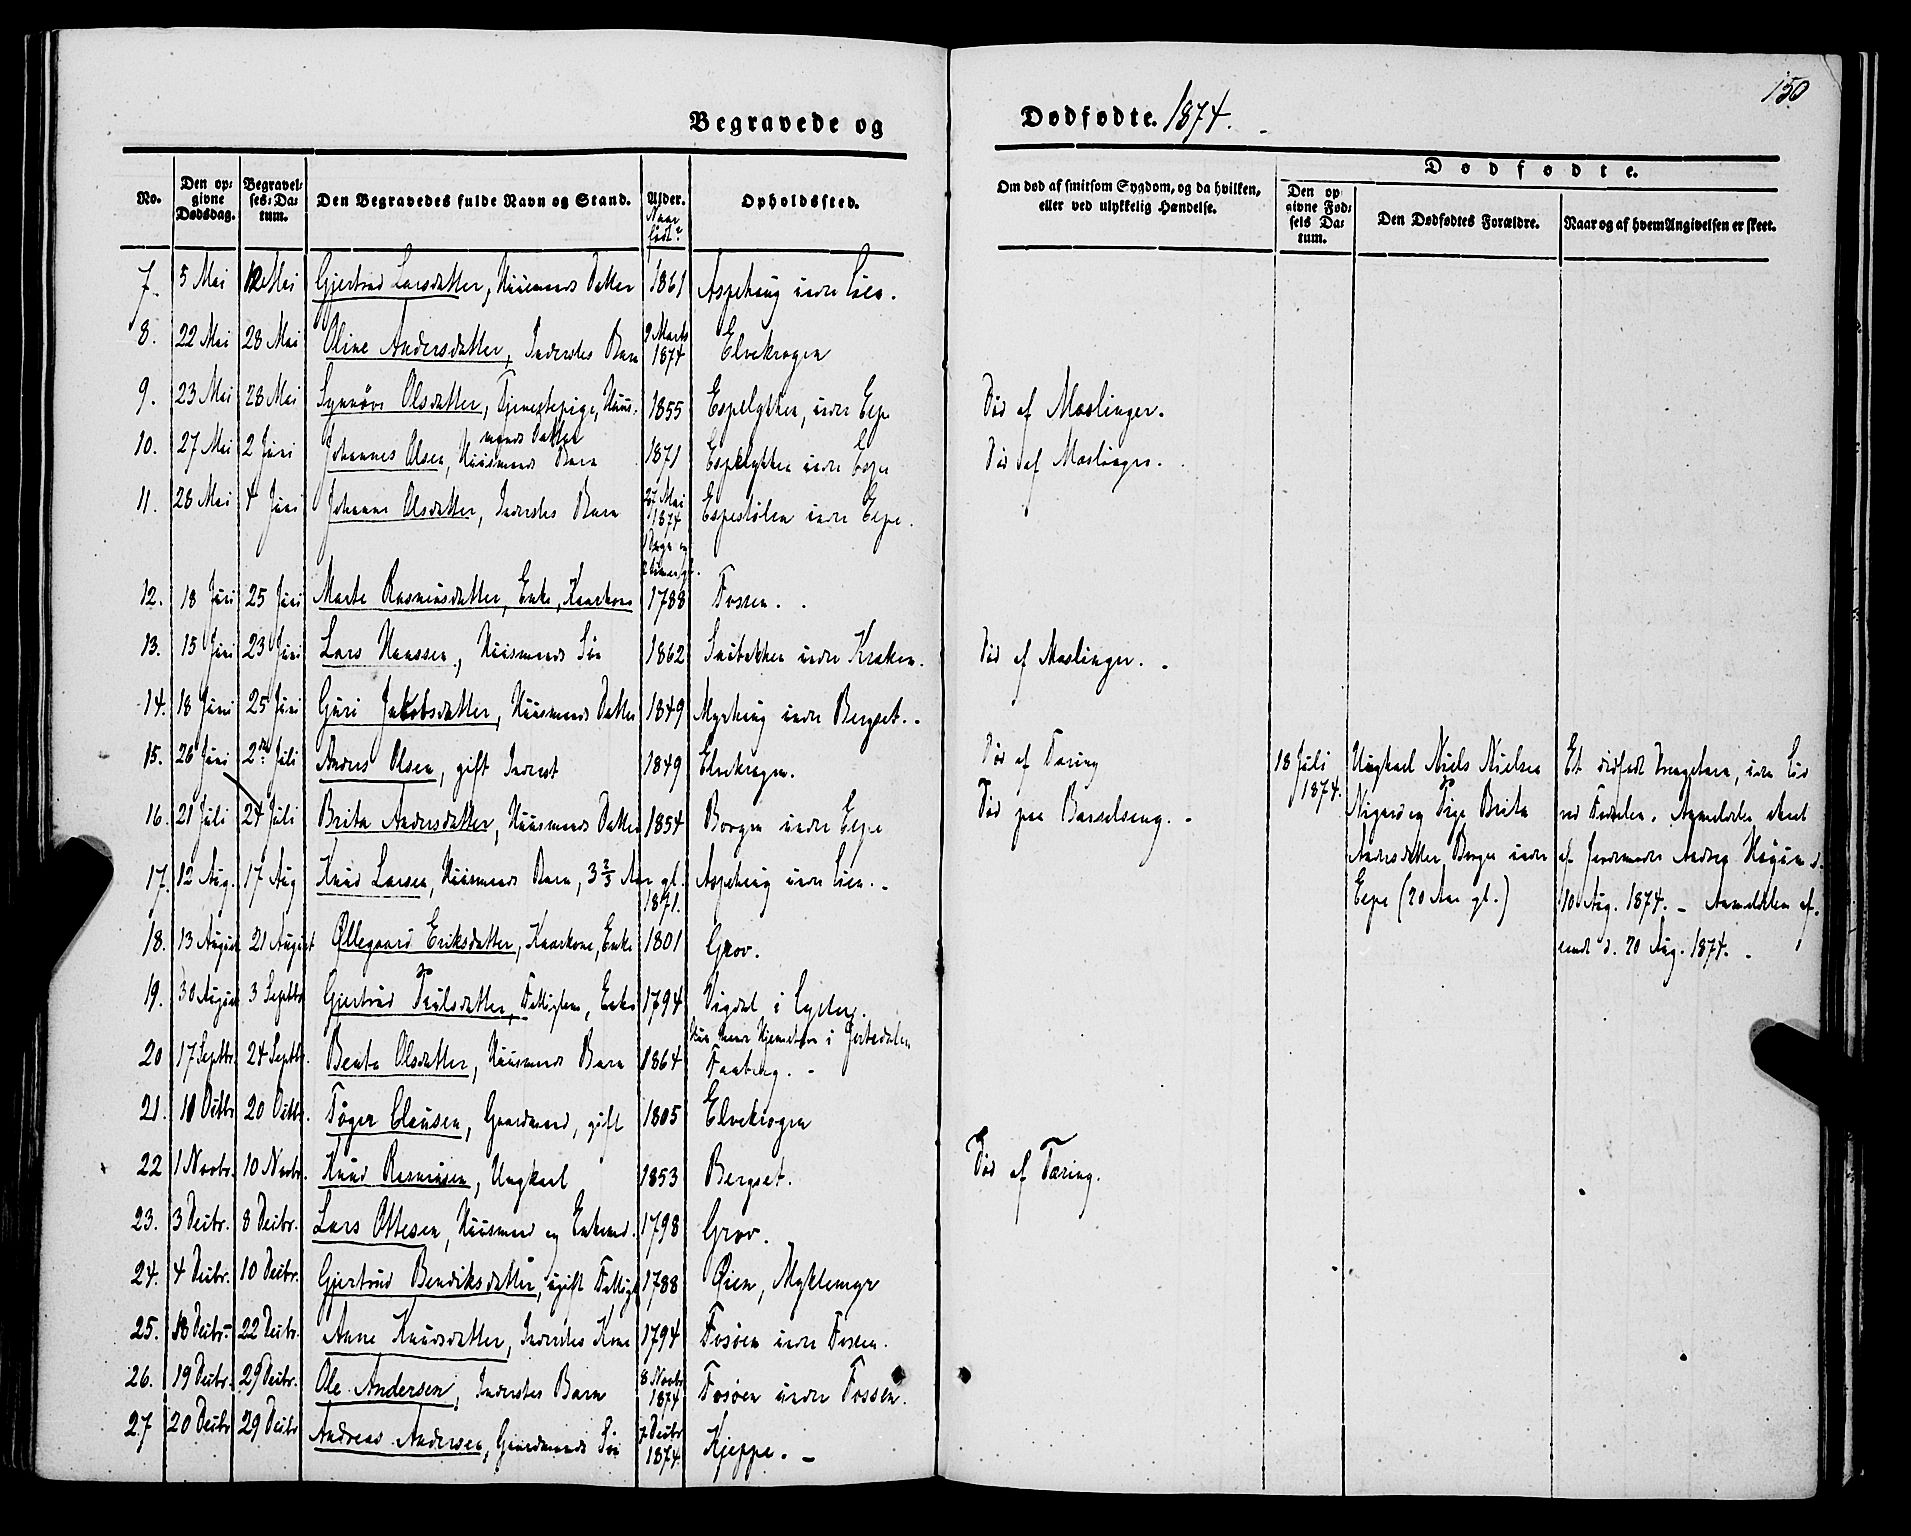 150
Begravede og Dødfødte. 1874.
No.
Den opgivne Dødsdag.
Begravelses-Datum.
Den Begravedes fulde Navn og Stand.
Alder.
Naar født?
Opholdssted.
Om død af smitsom Sygdom, og da hvilken, eller ved ulykkelig Hændelse.
Dødfødte.
Den opgivne Fødsels Datum.
Den Dødfødtes Forældre.
Naar og af hvem Angivelsen er skeet.
7. 5 Mai 12 Mai Gjertrud Larsdatter, Huusmands Datter 1861 Aspehaug under Lien.
8. 22 Mai 28 Mai Oline Andersdatter, Inderstes Barn 9 Marts 1874 Elvekrogen
9. 23 Mai 28 Mai Synnøve Olsdatter, Tjenestepige, Huus-
mands Datter 1855 Espelykken, under Espe Død af Mæslinger.
10. 27 Mai 2 Juni Johannes Olsen, Huusmands Barn 1871 Espelykken under Espe Død af Mæslinger.
11. 28 Mai 4 Juni Johanne Olsdatter, Inderstes Barn 27 Mai 1874 Espestølen under Espe.
1 Dage og
2 timer gl.
12. 18 Juni 25 Juni Marte Rasmusdatter, Enke, Kaarkone 1788 Fossen.
13. 15 Juni 23 Juni Lars Hanssen, Huusmands Søn 1862 under Kroken. Død af Mæslinger.
14. 18 Juni 25 Juni Guri Jakobsdatter, Huusmands Datter 1849 Myrhaug under Bergset.
15. 26 Juni 2den Juli Anders Olsen, gift Inderst 1849 Elvekrogen. Død af Tæring
16. 21 Juli 24 Juli Brita Andersdatter, Huusmands Datter 1854 Borgen under Espe Død paa Barselseng.
17. 12 Aug. 17 Aug Knud Larsen, Huusmands Barn, 3 2/3 Aar gl. 1871. Aspehaug under Lien.
18. 13 August 21 August Øllegaard Eriksdatter, Kaarkone, Enke 1801 Grov.
19. 30 August 3 Septbr. Gjertrud Paulsdatter, Fattiglem, Enke 1794 Vigdal i Lyster.
Hun havde Hjemstavn i Jostedalen
20 17 Septbr. 24 Septbr. Beata Olsdatter, Huusmands Barn 1864 Faaberg.
21. 10 Octbr 20 Octbr. Tøger Clausen, Gaardmand, gift 1805 Elvekrogen
22 1 Novbr. 10 Novbr. Knud Rasmusen, Ungkarl 1853 Bergset. Død af Tæring.
23. 3 Decbr. 8 Decbr. Lars Ottesen, Huusmand og Enkemd. 1798 Grov.
24. 4 Decbr. 10 Decbr. Gjertrud Bendiksdatter, ugift Fattigl. 1788 Øien, Myklemyr
25. 18 Decbr. 22 Decbr. Anne Knudsdatter, Inderstes Kone 1794 Fosøen under Fossen.
26. 19 Decbr. 29 Decbr. Ole Andersen, Inderstes Barn 8 Novbr 1874 Fosøen under Fossen.
27 20 Decbr 29 Decbr Andreas Andersen, Gaardmands Søn 7 Decbr 1874 Kjeppe.
18 Juli 1874.
Ungkarl Niels Nielsen
Nigard og Pige Brita
Andersdatter Borgen under
Espe (20 Aar gl.)
Et dødfødt Drengebarn, uden Liv
ved Fødselen. Anmeldelse skeet
af Jordemoder d.
10 Aug. 1874. – Anmeldelsen af-
sendt d. 20 Aug. 1874.